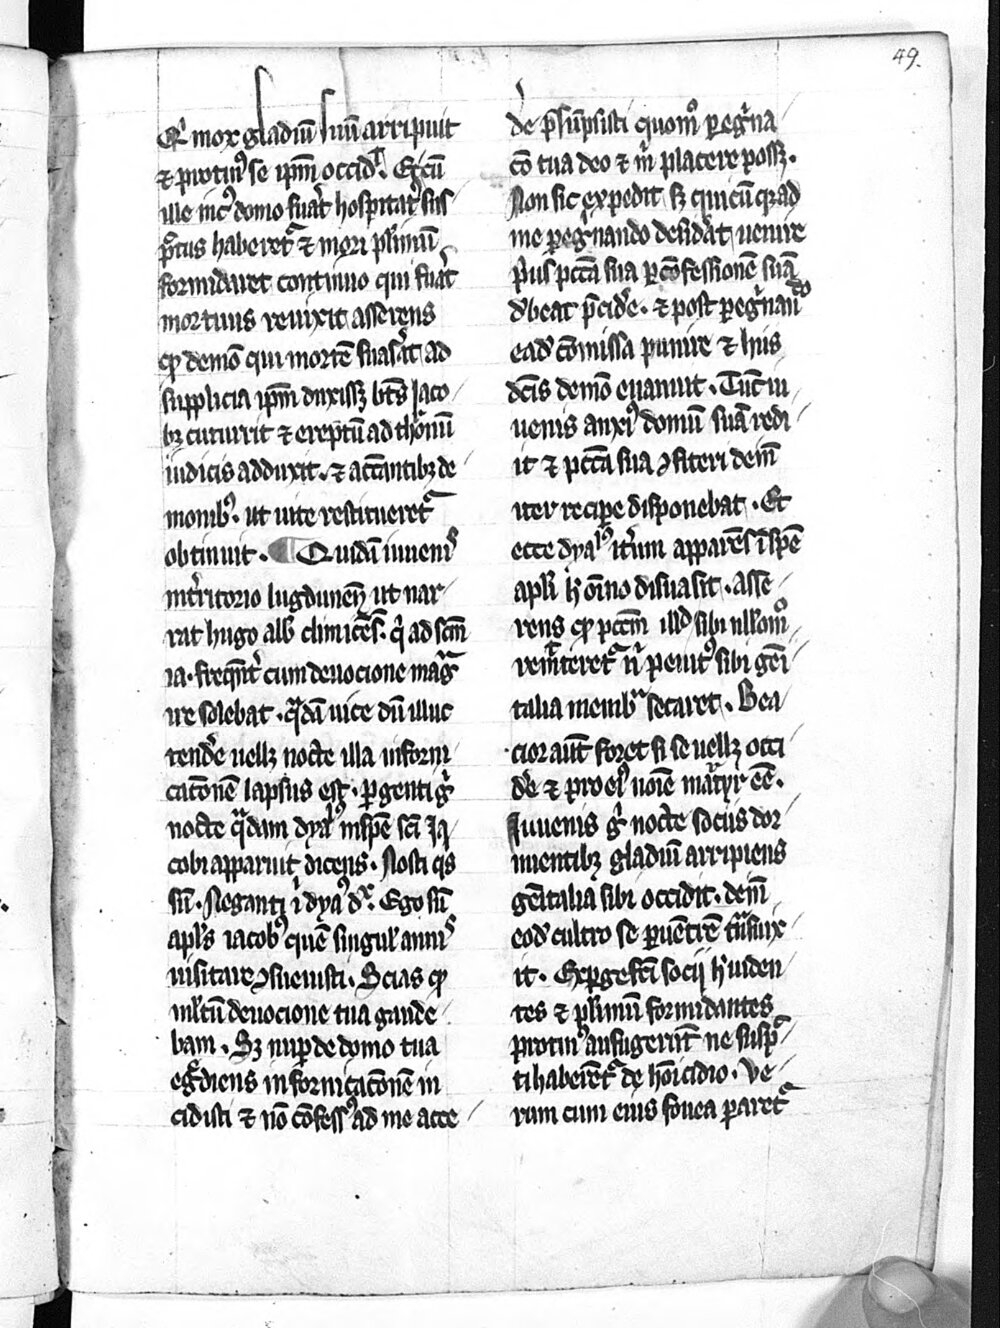 49.
Et mox gladiū suū arripuit
⁊ protinꝰ se ip̄m occid̓t. Et cū
ille in cuiꝰ domo fu̓at hospitatꝰ
haberet᷑ ⁊ mori plimū
formidaret continuo qui fu̓at
mortuus reuixit asserens
ꝙ demō qui mortē suas̓at ad
supplicia ip̄m duxissꝫ bt̄s Jaco
bꝫ cucurrit ⁊ ereptū ad thronū
iudicis adduxit. ⁊ accūantibꝫ de
monibꝰ. ut uite restitueret᷑
obtinuit. Quidā iuuenis
in t̓ritorio lugdunen̄ ut nar
rat hugo alb̄ cluniacēs. q̓ ad sc̄m
ia. freqn̄t̓ cum deuocione mag̃
ire solebat. q̃dā uice dū illuc
tend̓e uellꝫ nocte illa in forni
cac̄onē lapsus est. ꝑgenti g̓
nocte q̃dam dyaꝉꝰ in spē sc̄i Ja
cobi apparuit dicens. Nosti q̓s
sū. Neganti i̓ dyaꝰ dr̃. Ego sū
apl̄s iacobꝰ quē singul̓ annis
uisitare ꝯsueuisti. Scias ꝙ
ml̄tū deuocione tua gaude
bam. Sꝫ nuꝑ de domo tua
eg̃diens in fornicac̄onē in
cidisti ⁊ nō cōfessꝰ ad me acce
de p̄sūpsisti quomͦ ꝑeg̓na
cō tua deo ⁊ m̓ placere possꝫ.
Non sic expedit sꝫ quicūq̓ꝫ ad
me ꝑeg̓nando desid̓at uenire
p̓us pcc̄a sua ꝑ cōfessionē suā
d̓beat p̄cid̓e. ⁊ post ꝑeg̓nando
ead̓ cōmissa punire ⁊ hiis
dc̄is demō euanuit. Tūc iu
uenis anxiꝰ domū suā redi
it ⁊ pcc̄a sua ꝯfiteri deīn
iter reciꝑe disponebat. Et
ecce dyaꝉꝰ it̓um apparēs ī spē
apl̄i h̓ oīno disuasit. asse
rens ꝙ pcc̄m illd̓ sibi nll̄omͦ
remīteret᷑ n̓ penitꝰ sibi gēi
talia membᷓ secaret. Bea
cior aūt foret si se uellꝫ occi
d̓e ⁊ pro eiꝰ noīe mᷓrtyr ēē.
Juuenis g̓ nocte sociis dor
mientibꝫ gladiū arripiens
gēitalia sibi occidit. deīn
eod̓ cultro se ꝑ uentrē tᷓnsfix
it. Exꝑgefc̄i socij h̓ uiden
tes ⁊ pl̓imū formidantes
protinꝰ aufugerūt ne suspᷓ
ti haberēt᷑ de hōicidio. Ve
rum cum eius fouea ꝑaret᷑